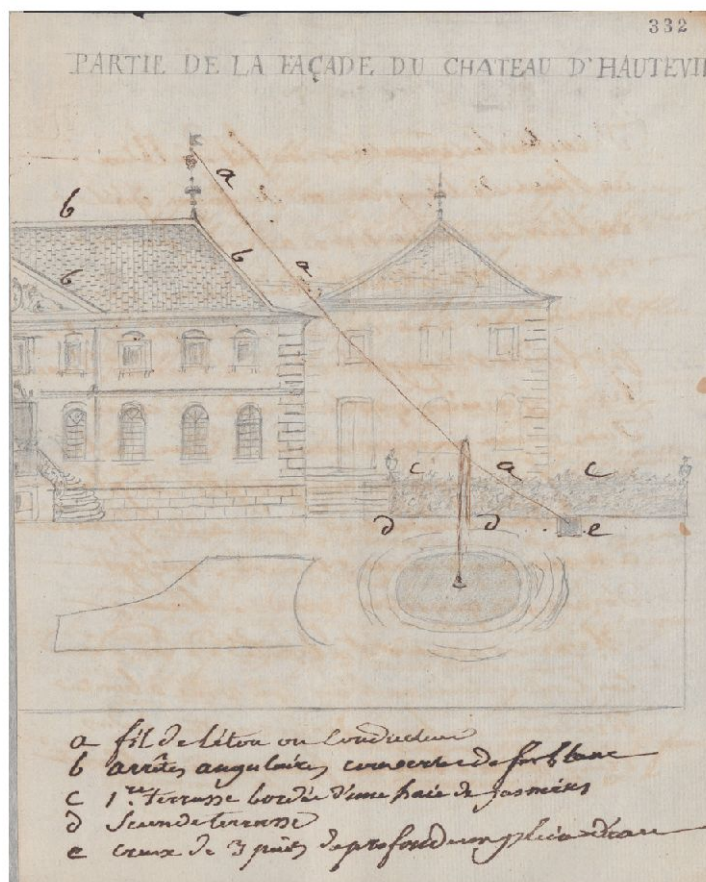 332
PARTIE DE LA FAÇADE DU CHATEAU D'HAUTEVIL
a
b
b
b
a
c
a
c
d
d
e
a fil de léton ou Conducteur
b arrêtes angulaires couvertes de fer blanc
c 1.re Terrasse bordée d'une haie de jasmins
d Seconde terrasse
e creux de 3 pieds de profondeur plein d'eau